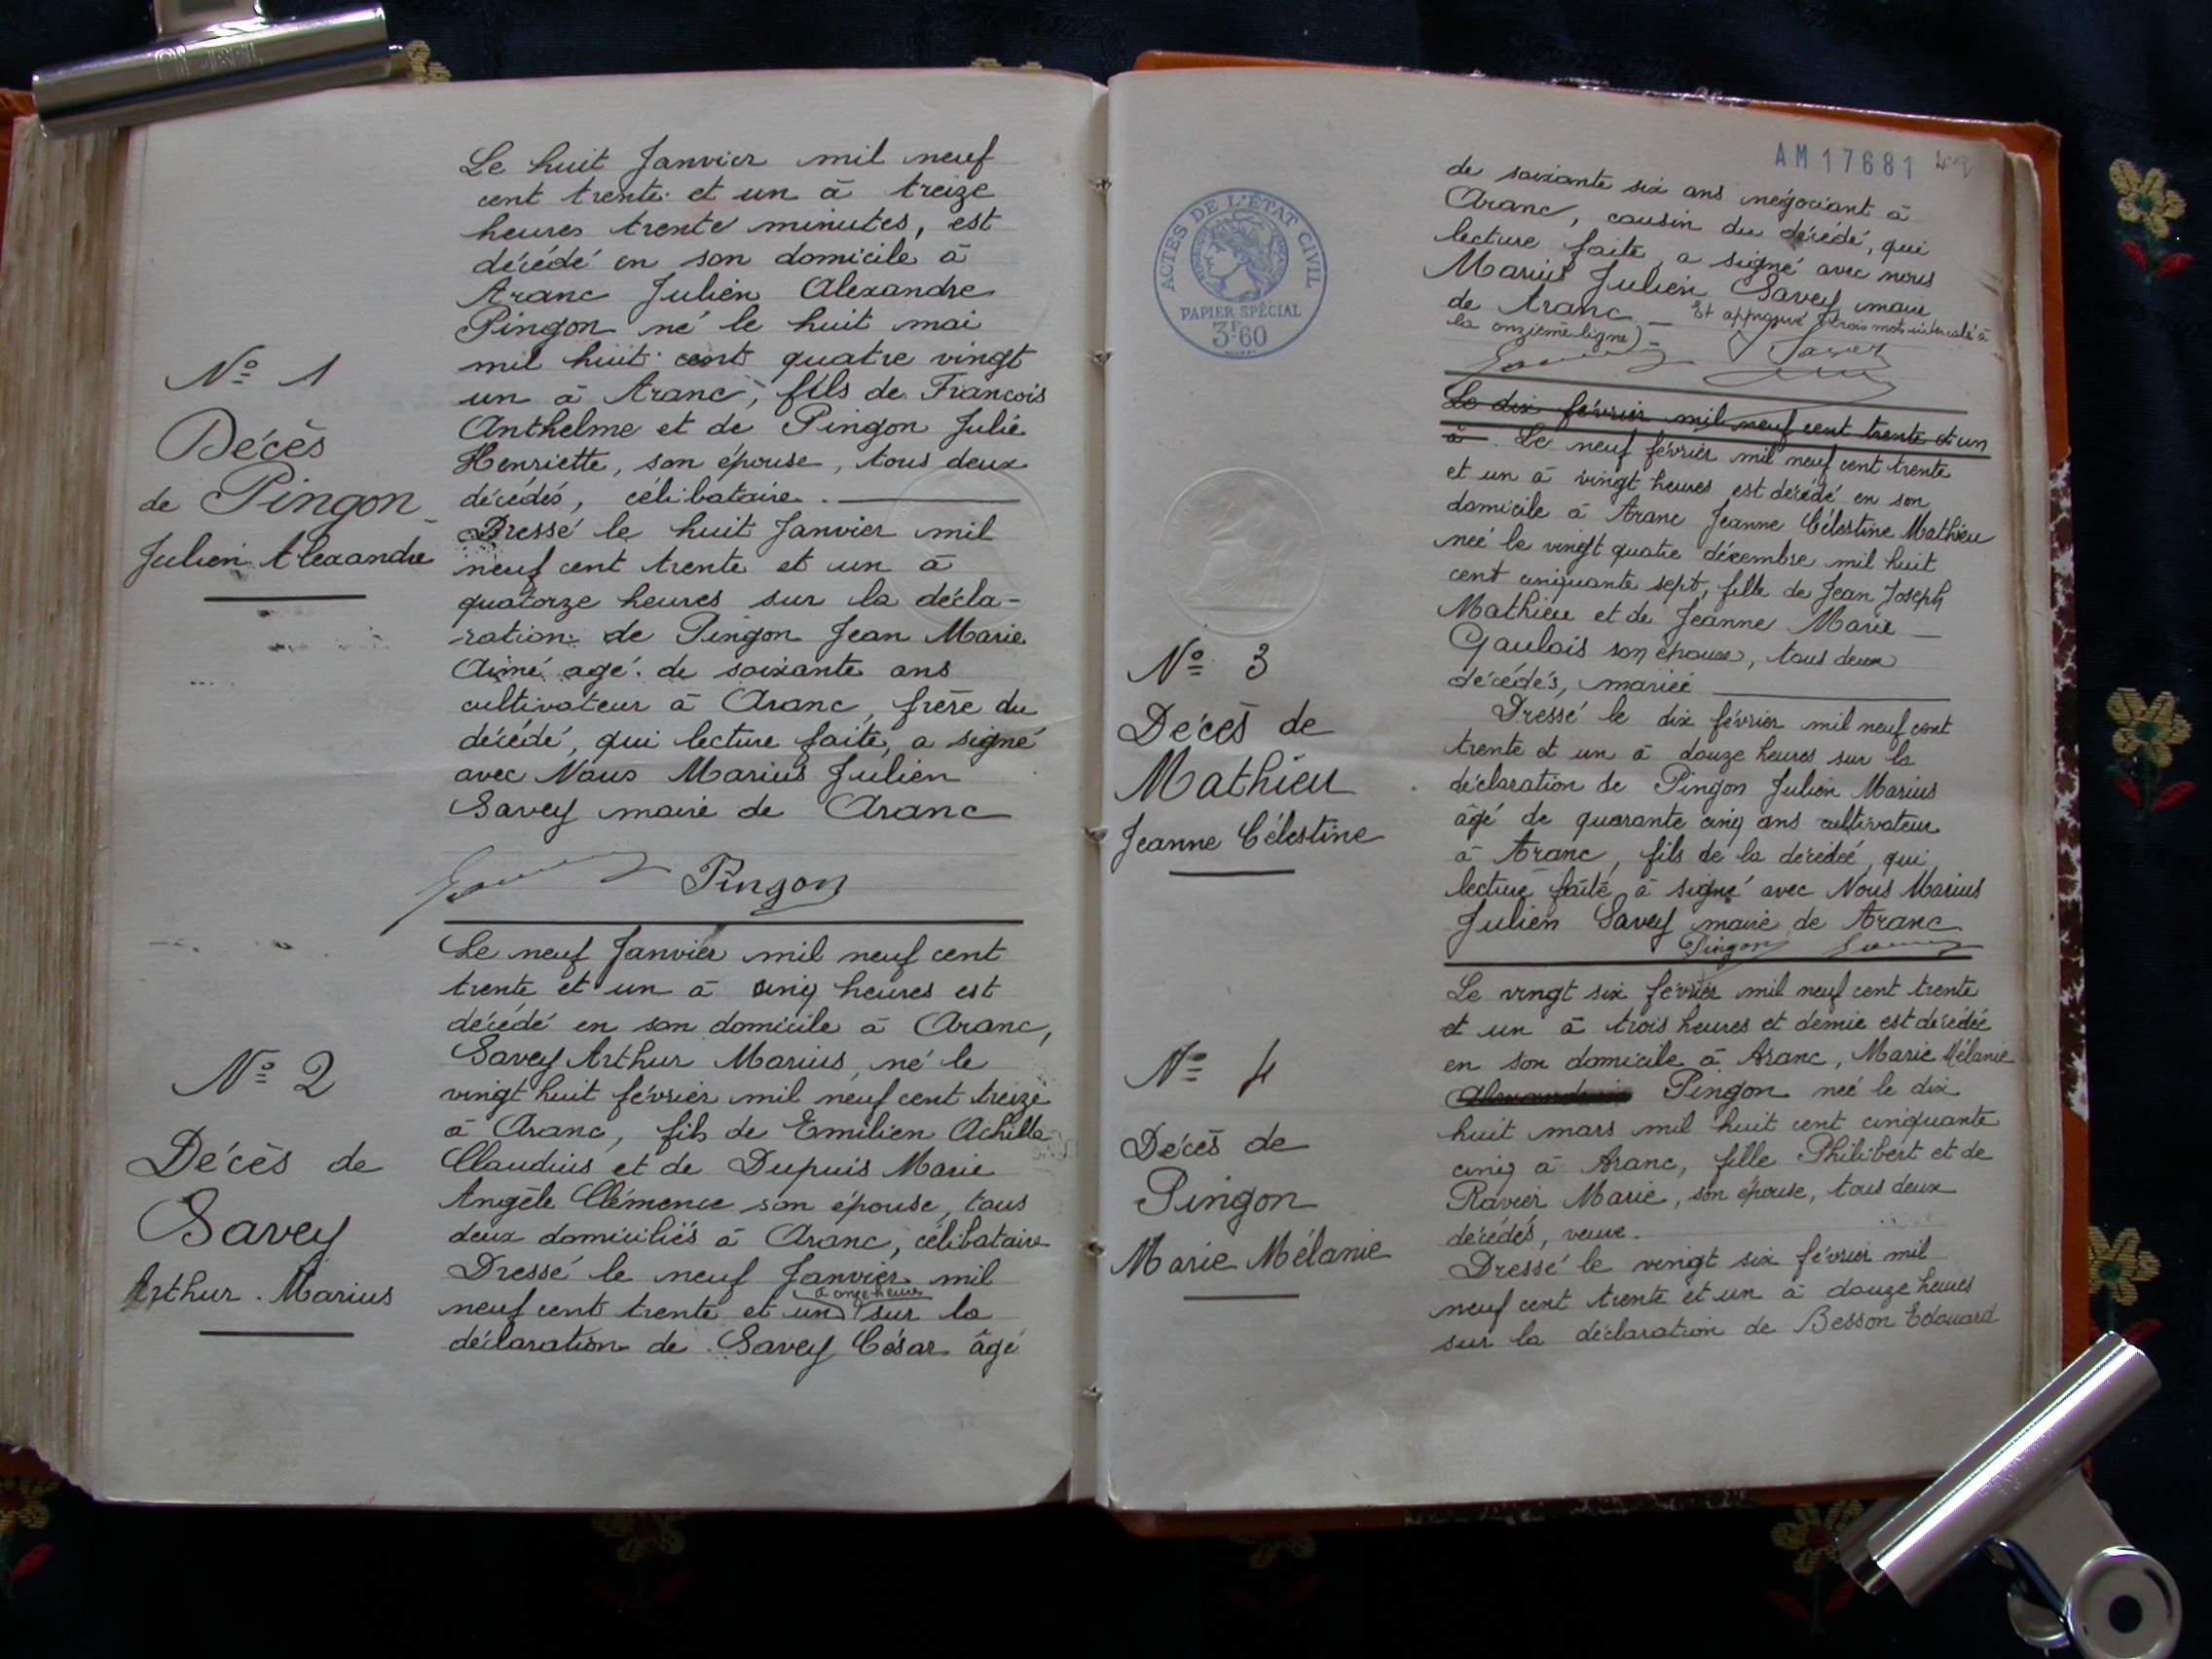 Le huit Janvier mil neuf
cent trente et un à treize
heures trente minutes, est
décédé en son domicile à
Aranc Julien Alexandre
Pingon né le huit mai
mil huit cent quatre vingt
un à Aranc, fils de François
Anthelme et de Pingon Julie
Henriette, son épouse, tous deux
décédés, célibataire.
Dressé le huit Janvier mil
neuf cent trente et un à
quatorze heures sur la décla-
ration de Pingon Jean Marie
Aimé agé de soixante ans
cultivateur à Aranc, frère du
décédé, qui lecture faite, a signé
avec Nous Marius Julien
Savey maire de Aranc
Pingon
N° 1
Décès
de Pingon
Julien Alexandre
Le neuf Janvier mil neuf cent
trente et un à cinq heures est
décédé en son domicile à Aranc,
Savey Arthur Marius, né le
vingt huit février mil neuf cent treize
à Aranc, fils de Emilien Achille
Claudius et de Dupuis Marie
Angèle Clémence son épouse, tous
deux domiciliés à Aranc, célibataire
Dressé le neuf Janvier mil
à onze heures
neuf cent trente et un sur la
déclaration de Savey César âgé
N° 2
Décès de
Savey
Arthur Marius
AM 17681 49
ACTES DE L'ÉTAT CIVIL
PAPIER SPÉCIAL
3F60
de soixante six ans négociant à
Aranc, cousin du décédé, qui
lecture faite, a signé avec nous
Marius Julien Savey maire
de Aranc - Et approuvé trois mots intercalé à
la onzième ligne) -
Savey
Le dix février mil neuf cent trente et un
à. Le neuf février mil neuf cent trente
et un à vingt heures est décédé en son
domicile à Aranc Jeanne Célestine Mathieu
née le vingt quatre décembre mil huit
cent cinquante sept, fille de Jean Joseph
Mathieu et de Jeanne Marie
Gaulois son épouse, tous deux
décédés, mariée
Dressé le dix février mil neuf cent
trente et un à douze heures sur la
déclaration de Pingon Julien Marius
âgé de quarante cinq ans cultivateur
à Aranc, fils de la décédée, qui
lecture faite, à signé avec Nous Marius
Julien Savey maire de Aranc
Pingon
N° 3
Décès de
Mathieu
Jeanne Célestine
Le vingt six février mil neuf cent trente
et un à trois heures et demie est décédée
en son domicile à Aranc, Marie Mélanie
Pingon née le dix
huit mars mil huit cent cinquante
cinq à Aranc, fille Philibert et de
Ravier Marie, son épouse, tous deux
décédés, veuve.
Dressé le vingt six février mil
neuf cent trente et un à douze heures
sur la déclaration de Besson Edouard
N° 4
Décès de
Pingon
Marie Mélanie